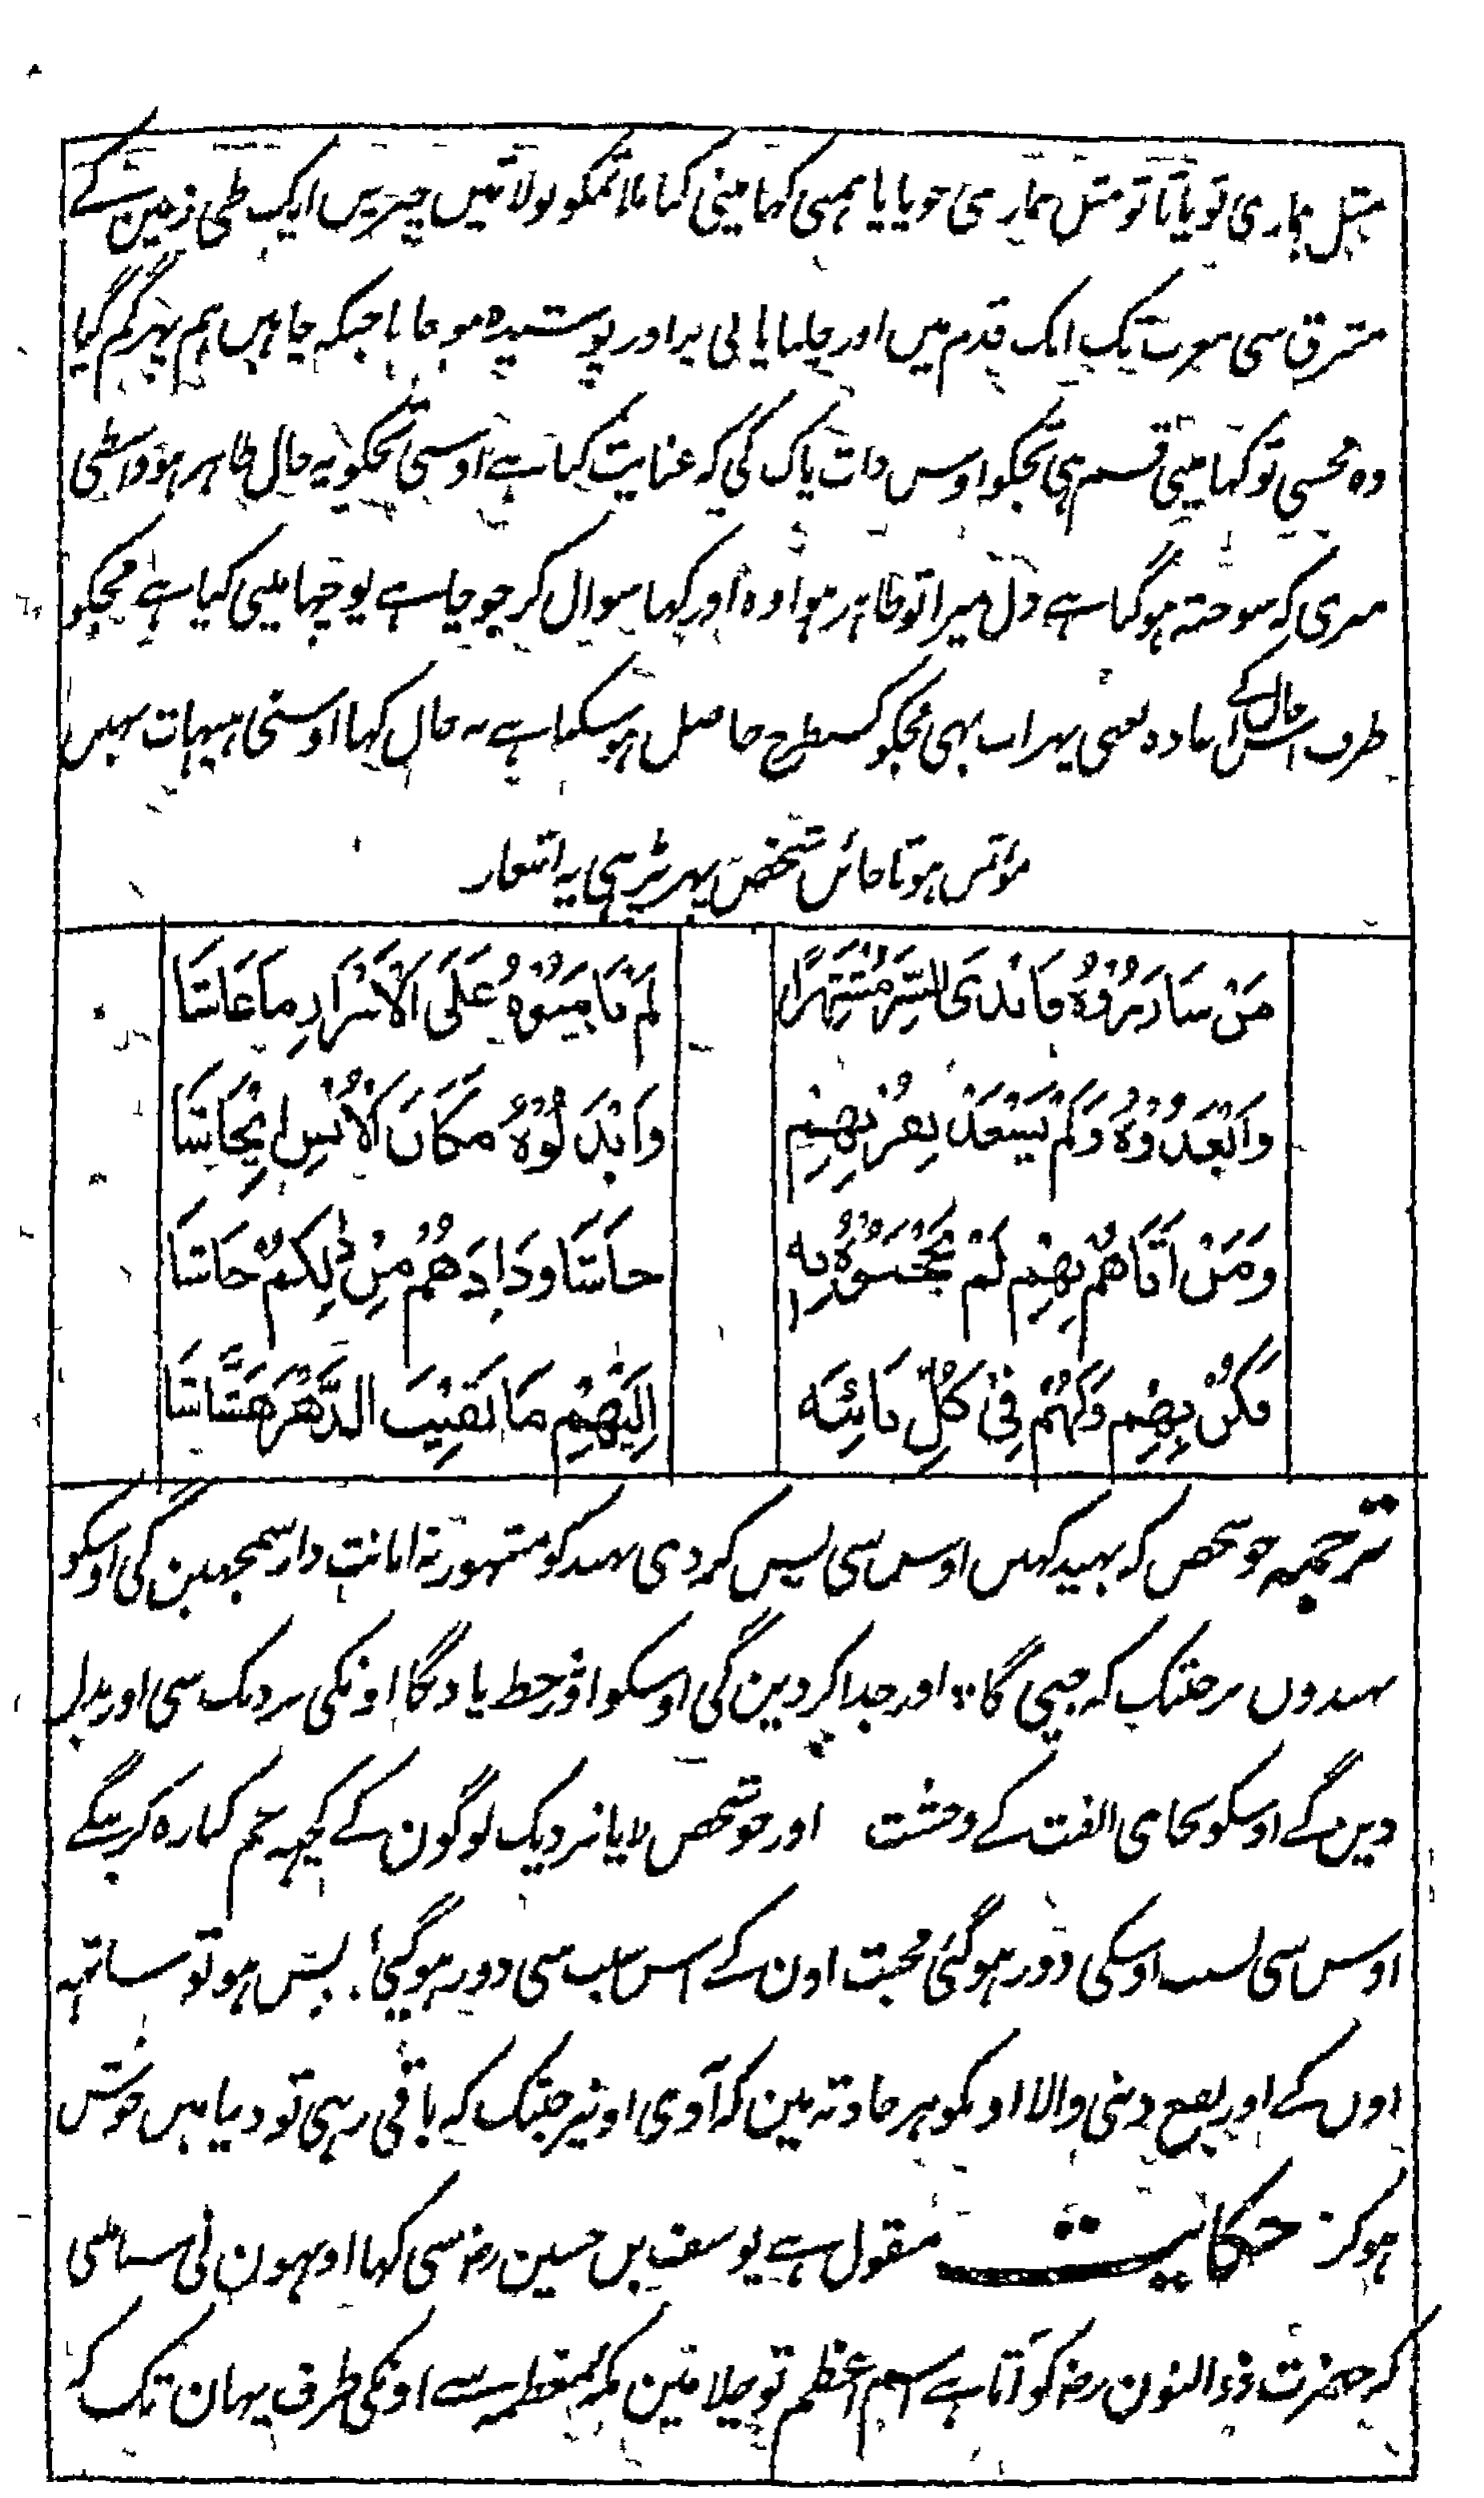 مثل ہماری تو پاتا تو مثل ہماری جو پایا ہمنی کہا مینی کیا ملا تمکو بولا تین چیزیں ایک طی زمین کے
مشرق سی مغرب تک ایک قدم میں اور چلنا پانی پر اور پوشیدہ ہو جانا جبکہ چاہیں ہم پہر گم گیا
وہ مجسی تو کہا مینی قسم ہی تجکو اوس ذات پاک کی کہ عنایت کیا ہے اوسنی تجکو یہ حال ظاہر ہو واسطی
میری کہ سوختہ ہو گیا ہے دل میرا تو ظاہر ہوا وہ اور کہا سوال کر جو چاہے پوچہا مینی کیا ہے مجکو
طرف اس حال کے اعادہ یعنی پہر اب بہی مجکو کسطرح حاصل ہو سکتا ہے یہ حال کہا اوسنی ہیہات نہیں
مونس ہوتا خائن شخص پہر پڑہی یہ اشعار
مَنْ سَارَرُوْهُ فَابْدَى السِّرَّ مُشْتَهِرًا لَمْ يَامَنُوْهُ عَلَى الْاَسْرَارِ مَا عَاشَا
وَاَبْعَدُوْهُ وَلَمْ يَسْعَدْ بِقُرْبِهِمْ وَاَبْدَلُوْهُ مَكَانَ الْاُنْسِ اِيْحَاشَا
وَمَنْ اَتَاهُمْ بِهِمْ لَمْ يَحْجُبُوْهُ بِهِ حَاشَا وِدَادَهُمْ مِنْ ذٰلِكُمْ حَاشَا
فَكُنْ بِهِمْ وَلَهُمْ فِيْ كُلِّ نَائِبَةٍ اِلَيْهِمْ مَا بَقِيْتَ الدَّهْرَ هَشَّاشَا
ترجمہ جو شخص کہ بہید کہیں اوس سی پس کر دی بہید کو مشہور نہ امانت دار سمجہین گی اوسکو
بہیدوں پر جتک کہ جیی گا ؞ اور جدا کر دین گی اوسکو اور نہ حظ پاویگا اونکی نزدیک سی اور بدل
دیں گے اوسکو بجای الفت کے وحشت اور جو شخص لایا نزدیک لوگون کے کچہ جرم کنارہ کرینگے
اوس سی بسبب اوسکی دور ہو گئی محبت اون کے اس سبب سی دور ہو گیی ؞ پس ہو تو ساتہہ
اوں کے اور نفع دینی والا اونکو ہر حادثہ مین کہ آوی اونپر جتک کہ باقی رہی تو دنیا میں خوش
ہو کر ؞ حکایت منقول ہے یوسف بن حسین رضہ سی کہا اونہون نی سنا مینی
کہ حضرت ذو النون رضہ کو آتا ہے اسم اعظم تو چلا مین مکہ معظمہ سے اونکی طرف یہان تک کہ